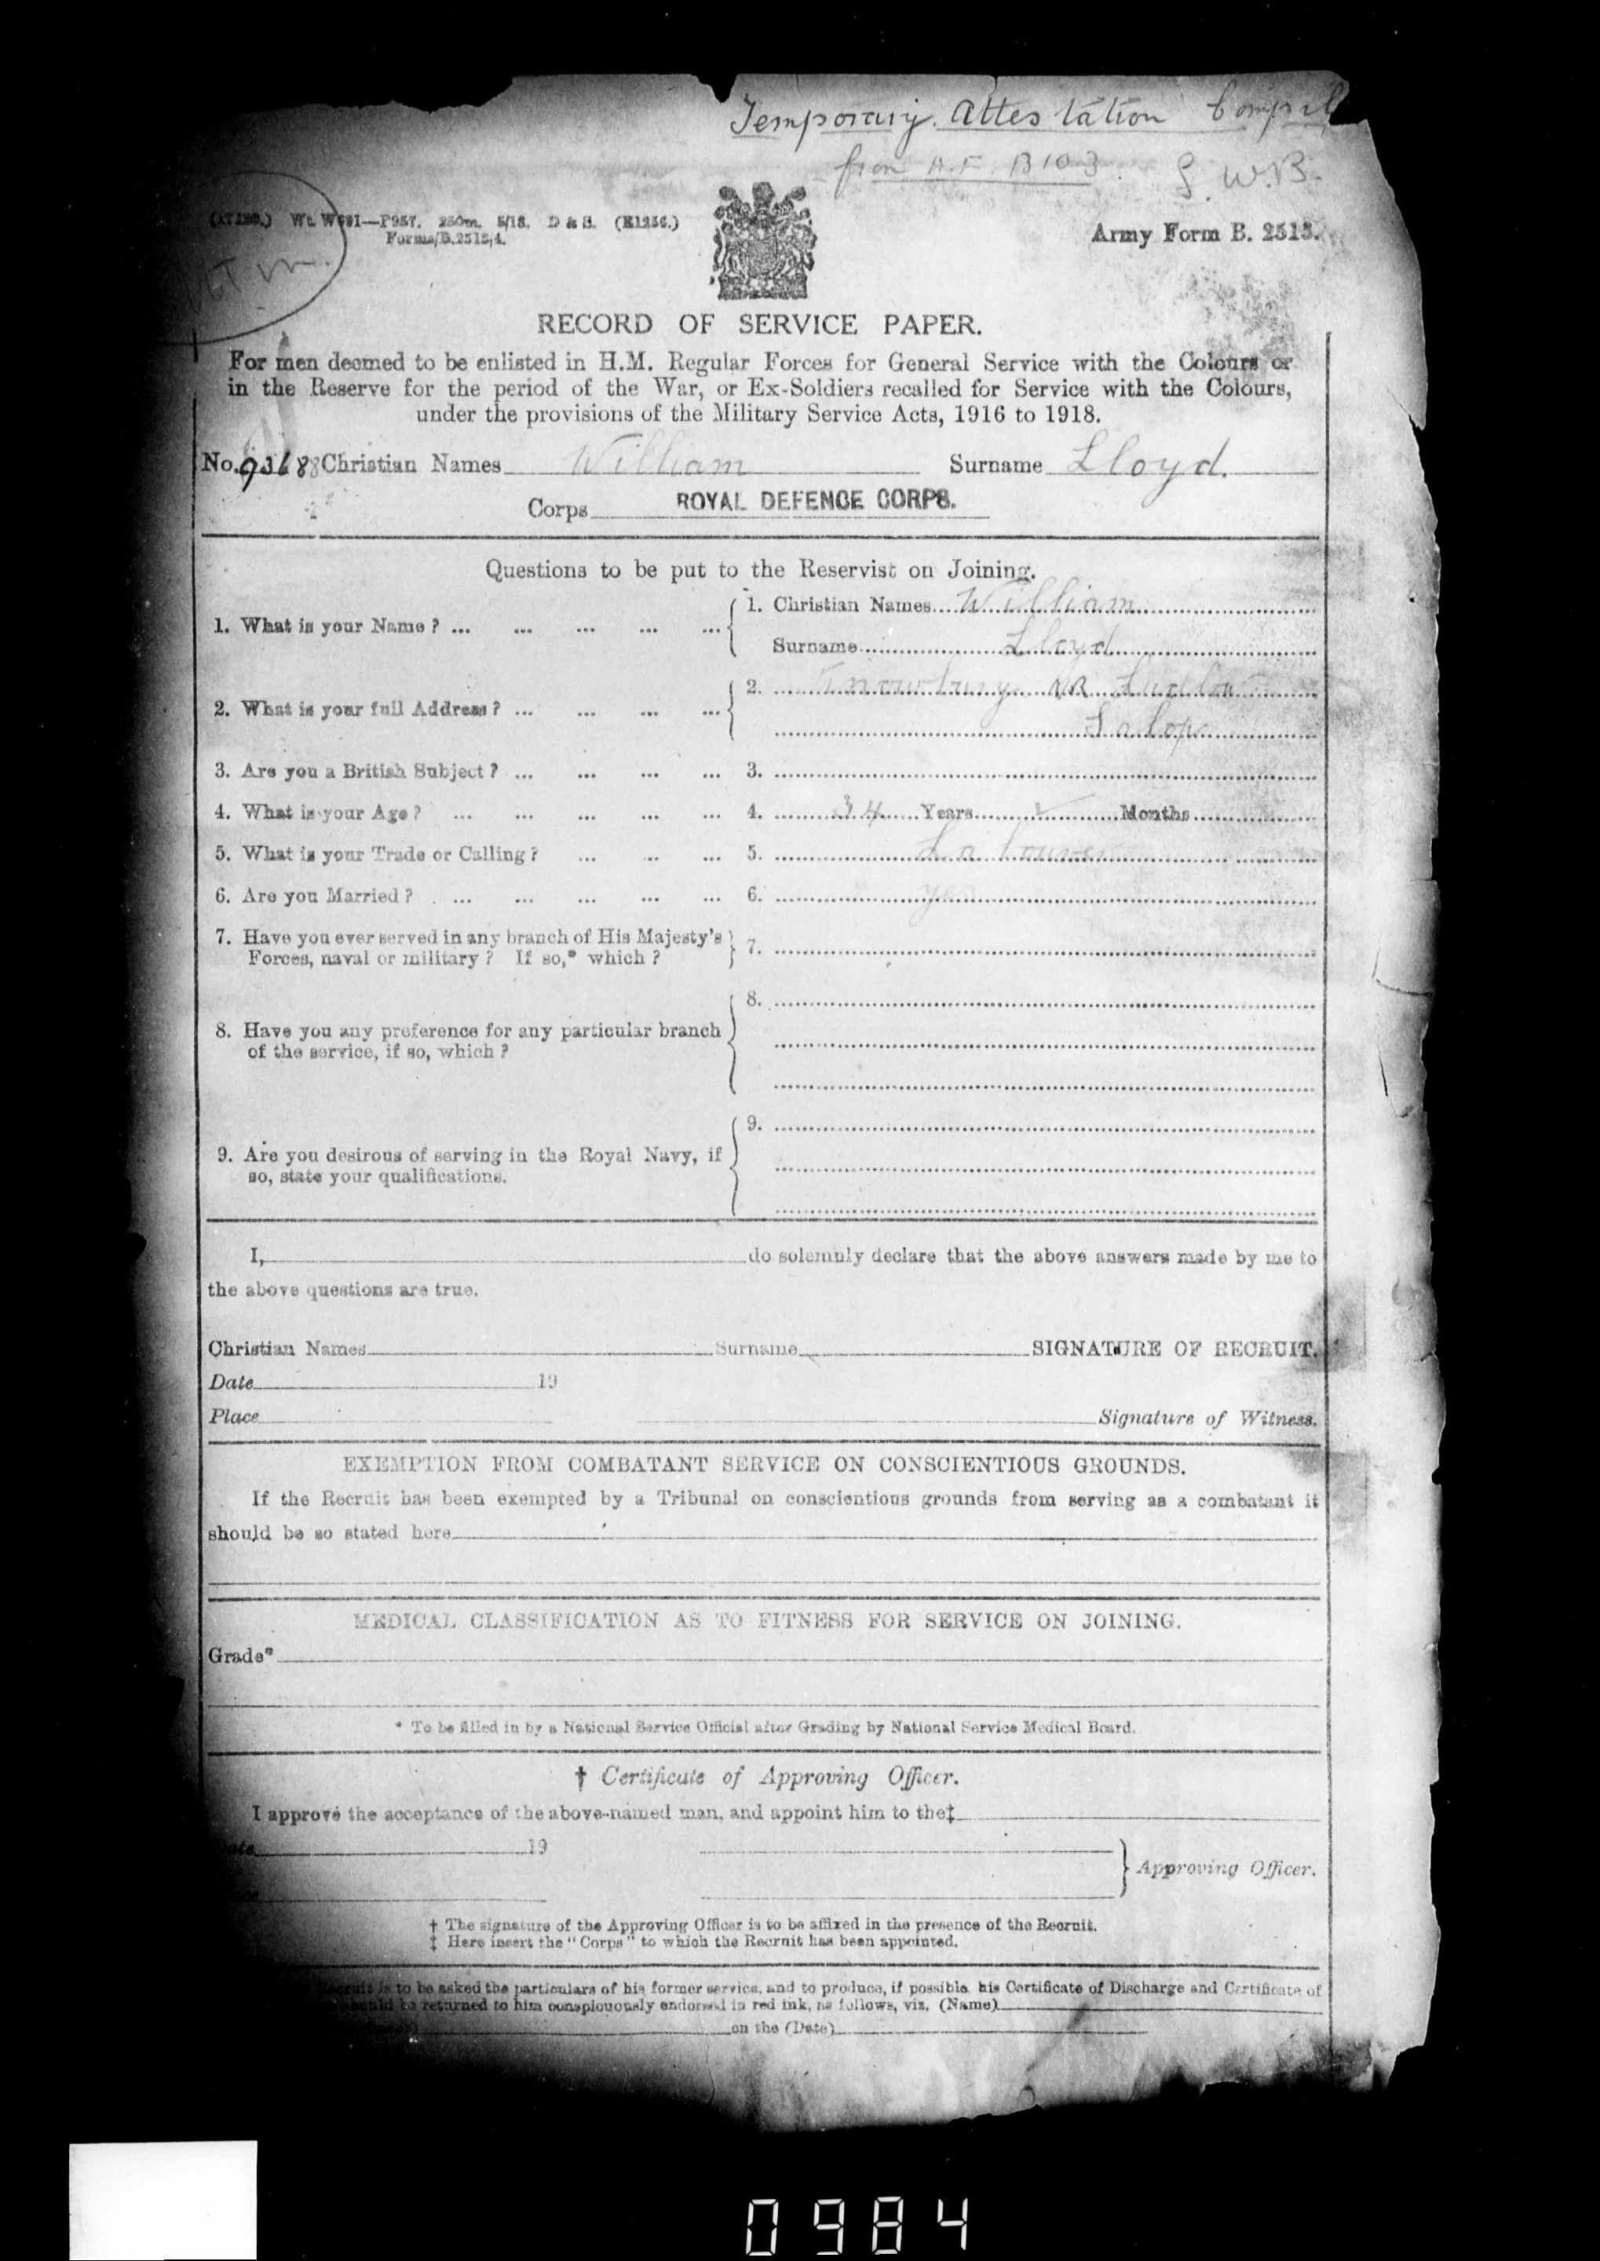 Temporary Attestation
from A.F. B103. S.W.B.
Wt. W691—P957. 250m. 5/18. D & S. (E1256.)
Forms/B.2515/4.
Army Form B. 2513.
RECORD OF SERVICE PAPER.
For men deemed to be enlisted in H.M. Regular Forces for General Service with the Colours or
in the Reserve for the period of the War, or Ex-Soldiers recalled for Service with the Colours,
under the provisions of the Military Service Acts, 1916 to 1918.
No. Christian Names William Surname Lloyd.
Corps ROYAL DEFENCE CORPS.
Questions to be put to the Reservist on Joining.
1. What is your Name? ... ... ... ... ... 1. Christian Names William
Surname Lloyd
2. What is your full Address? ... ... ... ... 2. Knowbury NR Ludlow
Salop
3. Are you a British Subject? ... ... ... ... 3.
4. What is your Age? ... ... ... ... ... 4. 34 Years Months
5. What is your Trade or Calling? ... ... ... 5. Labourer
6. Are you Married? ... ... ... ... ... 6. yes
7. Have you ever served in any branch of His Majesty's
Forces, naval or military? If so,* which? 7.
8. Have you any preference for any particular branch
of the service, if so, which? 8.
9. Are you desirous of serving in the Royal Navy, if
so, state your qualifications. 9.
I, do solemnly declare that the above answers made by me to
the above questions are true.
Christian Names Surname SIGNATURE OF RECRUIT.
Date 19
Place Signature of Witness.
EXEMPTION FROM COMBATANT SERVICE ON CONSCIENTIOUS GROUNDS.
If the Recruit has been exempted by a Tribunal on conscientious grounds from serving as a combatant it
should be so stated here
MEDICAL CLASSIFICATION AS TO FITNESS FOR SERVICE ON JOINING.
Grade*
* To be filled in by a National Service Official after Grading by National Service Medical Board.
† Certificate of Approving Officer.
I approve the acceptance of the above-named man, and appoint him to the‡
19
Approving Officer.
† The signature of the Approving Officer is to be affixed in the presence of the Recruit.
‡ Here insert the "Corps" to which the Recruit has been appointed.
Recruit is to be asked the particulars of his former service, and to produce, if possible, his Certificate of Discharge and Certificate of
should be returned to him conspicuously endorsed in red ink, as follows, viz. (Name)
on the (Date)
0984